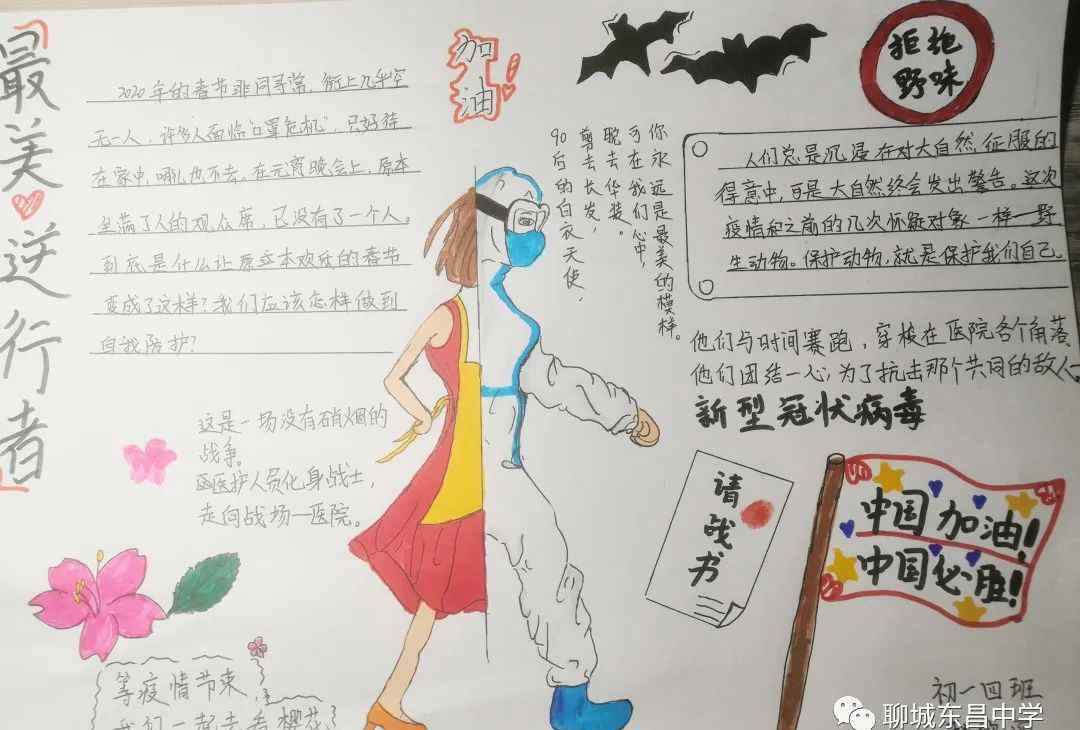 最美逆行者
2020年的春节非同寻常，街上几乎空
无一人，许多人面临“口罩危机”，只好待
在家中，哪儿也不去。在元宵晚会上，原本
坐满了人的观众席，已没有了一个人。
到底是什么让原本欢欣的春节
变成了这样？我们应该怎样做到
自我防护？
加油！
拒绝
野味
你永远是最美的模样。
可在我们心中，
脱去华装。
剪去长发，
90后的白衣天使，
人们总是沉浸在对大自然征服的
得意中，可是大自然终会发出警告。这次
疫情和之前的几次怀疑对象一样—野
生动物。保护动物，就是保护我们自己。
他们与时间赛跑，穿梭在医院各个角落
他们团结一心，为了抗击那个共同的敌人。
新型冠状病毒
这是一场没有硝烟的
战争。
医护人员化身战士，
走向战场—医院。
请战书
中国加油！
中国必胜！
等疫情节束，
我们一起去看樱花
初一四班
聊城东昌中学